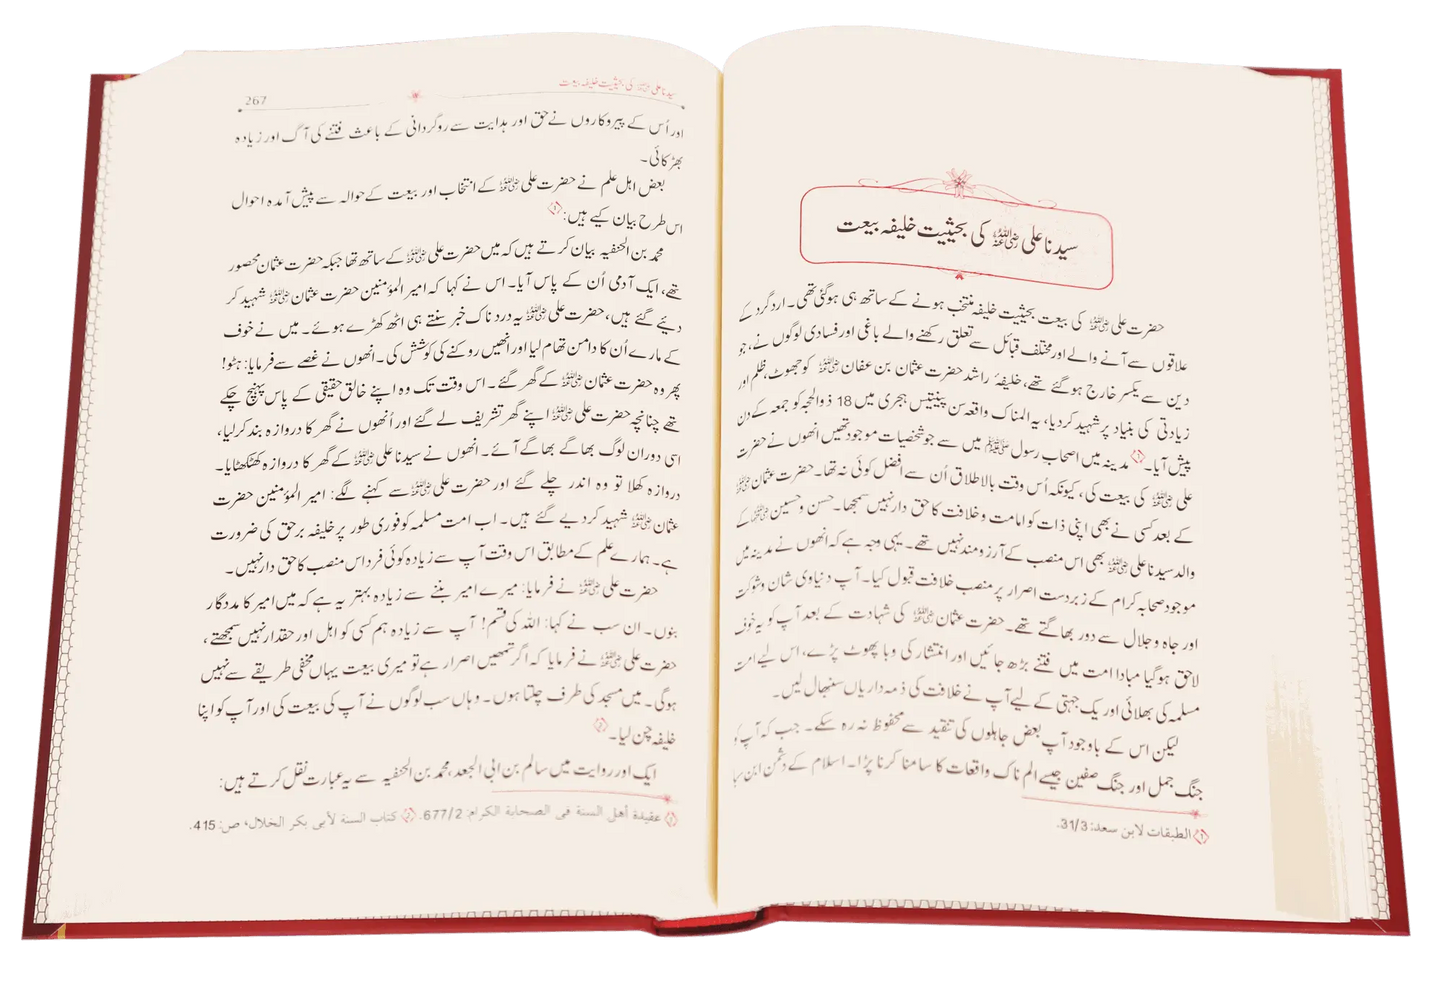 سیدنا علی رضی اللہ عنہ کی بحیثیت خلیفہ بیعت
حضرت علی رضی اللہ عنہ کی بیعت بحیثیت خلیفہ منتخب ہونے کے ساتھ ہی ہوگئی تھی۔ اردگرد کے
علاقوں سے آنے والے اور مختلف قبائل سے تعلق رکھنے والے باغی اور فسادی لوگوں نے، جو
دین سے یکسر خارج ہو گئے تھے، خلیفۂ راشد حضرت عثمان بن عفان رضی اللہ عنہ کو جھوٹ، ظلم اور
زیادتی کی بنیاد پر شہید کر دیا، یہ المناک واقعہ سن پینتیس ہجری میں 18 ذوالحجہ کو جمعہ کے دن
پیش آیا۔ ① مدینہ میں اصحاب رسول ﷺ میں سے جو شخصیات موجود تھیں انھوں نے حضرت
علی رضی اللہ عنہ کی بیعت کی، کیونکہ اُس وقت بالاطلاق اُن سے افضل کوئی نہ تھا۔ حضرت عثمان رضی اللہ عنہ
کے بعد کسی نے بھی اپنی ذات کو امامت و خلافت کا حق دار نہیں سمجھا۔ حسن و حسین رضی اللہ عنہما کے
والد سیدنا علی رضی اللہ عنہ بھی اس منصب کے آرزومند نہیں تھے۔ یہی وجہ ہے کہ انھوں نے مدینہ میں
موجود صحابہ کرام کے زبردست اصرار پر منصب خلافت قبول کیا۔ آپ دنیاوی شان و شوکت
اور جاہ و جلال سے دور بھاگتے تھے۔ حضرت عثمان رضی اللہ عنہ کی شہادت کے بعد آپ کو یہ خوف
لاحق ہوگیا مبادا امت میں فتنے بڑھ جائیں اور انتشار کی وبا پھوٹ پڑے، اس لیے امت
مسلمہ کی بھلائی اور یک جہتی کے لیے آپ نے خلافت کی ذمہ داریاں سنبھال لیں۔
لیکن اس کے باوجود آپ بعض جاہلوں کی تنقید سے محفوظ نہ رہ سکے۔ جب کہ آپ کو
جنگ جمل اور جنگ صفین جیسے الم ناک واقعات کا سامنا کرنا پڑا۔ اسلام کے دشمن ابن سبا
① الطبقات لابن سعد: 31/3.
سیدنا علی رضی اللہ عنہ کی بحیثیت خلیفہ بیعت
267
اور اُس کے پیروکاروں نے حق اور ہدایت سے روگردانی کے باعث فتنے کی آگ اور زیادہ
بھڑکائی۔
بعض اہل علم نے حضرت علی رضی اللہ عنہ کے انتخاب اور بیعت کے حوالہ سے پیش آمدہ احوال
اس طرح بیان کیے ہیں: ①
محمد بن الحنفیہ بیان کرتے ہیں کہ میں حضرت علی رضی اللہ عنہ کے ساتھ تھا جبکہ حضرت عثمان محصور
تھے، ایک آدمی اُن کے پاس آیا۔ اس نے کہا کہ امیر المؤمنین حضرت عثمان رضی اللہ عنہ شہید کر
دیئے گئے ہیں، حضرت علی رضی اللہ عنہ یہ دردناک خبر سنتے ہی اٹھ کھڑے ہوئے۔ میں نے خوف
کے مارے اُن کا دامن تھام لیا اور انھیں روکنے کی کوشش کی۔ انھوں نے غصے سے فرمایا: ہٹو!
پھر وہ حضرت عثمان رضی اللہ عنہ کے گھر گئے۔ اس وقت تک وہ اپنے خالق حقیقی کے پاس پہنچ چکے
تھے چنانچہ حضرت علی رضی اللہ عنہ اپنے گھر تشریف لے گئے اور اُنھوں نے گھر کا دروازہ بند کر لیا،
اسی دوران لوگ بھاگے بھاگے آئے۔ انھوں نے سیدنا علی رضی اللہ عنہ کے گھر کا دروازہ کھٹکھٹایا۔
دروازہ کھلا تو وہ اندر چلے گئے اور حضرت علی رضی اللہ عنہ سے کہنے لگے: امیر المؤمنین حضرت
عثمان رضی اللہ عنہ شہید کر دیے گئے ہیں۔ اب امت مسلمہ کو فوری طور پر خلیفہ برحق کی ضرورت
ہے۔ ہمارے علم کے مطابق اس وقت آپ سے زیادہ کوئی فرد اس منصب کا حق دار نہیں۔
حضرت علی رضی اللہ عنہ نے فرمایا: میرے امیر بننے سے زیادہ بہتر یہ ہے کہ میں امیر کا مددگار
بنوں۔ ان سب نے کہا: اللہ کی قسم! آپ سے زیادہ ہم کسی کو اہل اور حقدار نہیں سمجھتے،
حضرت علی رضی اللہ عنہ نے فرمایا کہ اگر تمھیں اصرار ہے تو میری بیعت یہاں مخفی طریقے سے نہیں
ہوگی۔ میں مسجد کی طرف چلتا ہوں۔ وہاں سب لوگوں نے آپ کی بیعت کی اور آپ کو اپنا
خلیفہ چن لیا۔ ②
ایک اور روایت میں سالم بن ابی الجعد، محمد بن الحنفیہ سے یہ عبارت نقل کرتے ہیں:
① عقيدة أهل السنة في الصحابة الكرام: 677/2. ② كتاب السنة لأبي بكر الخلال، ص: 415.